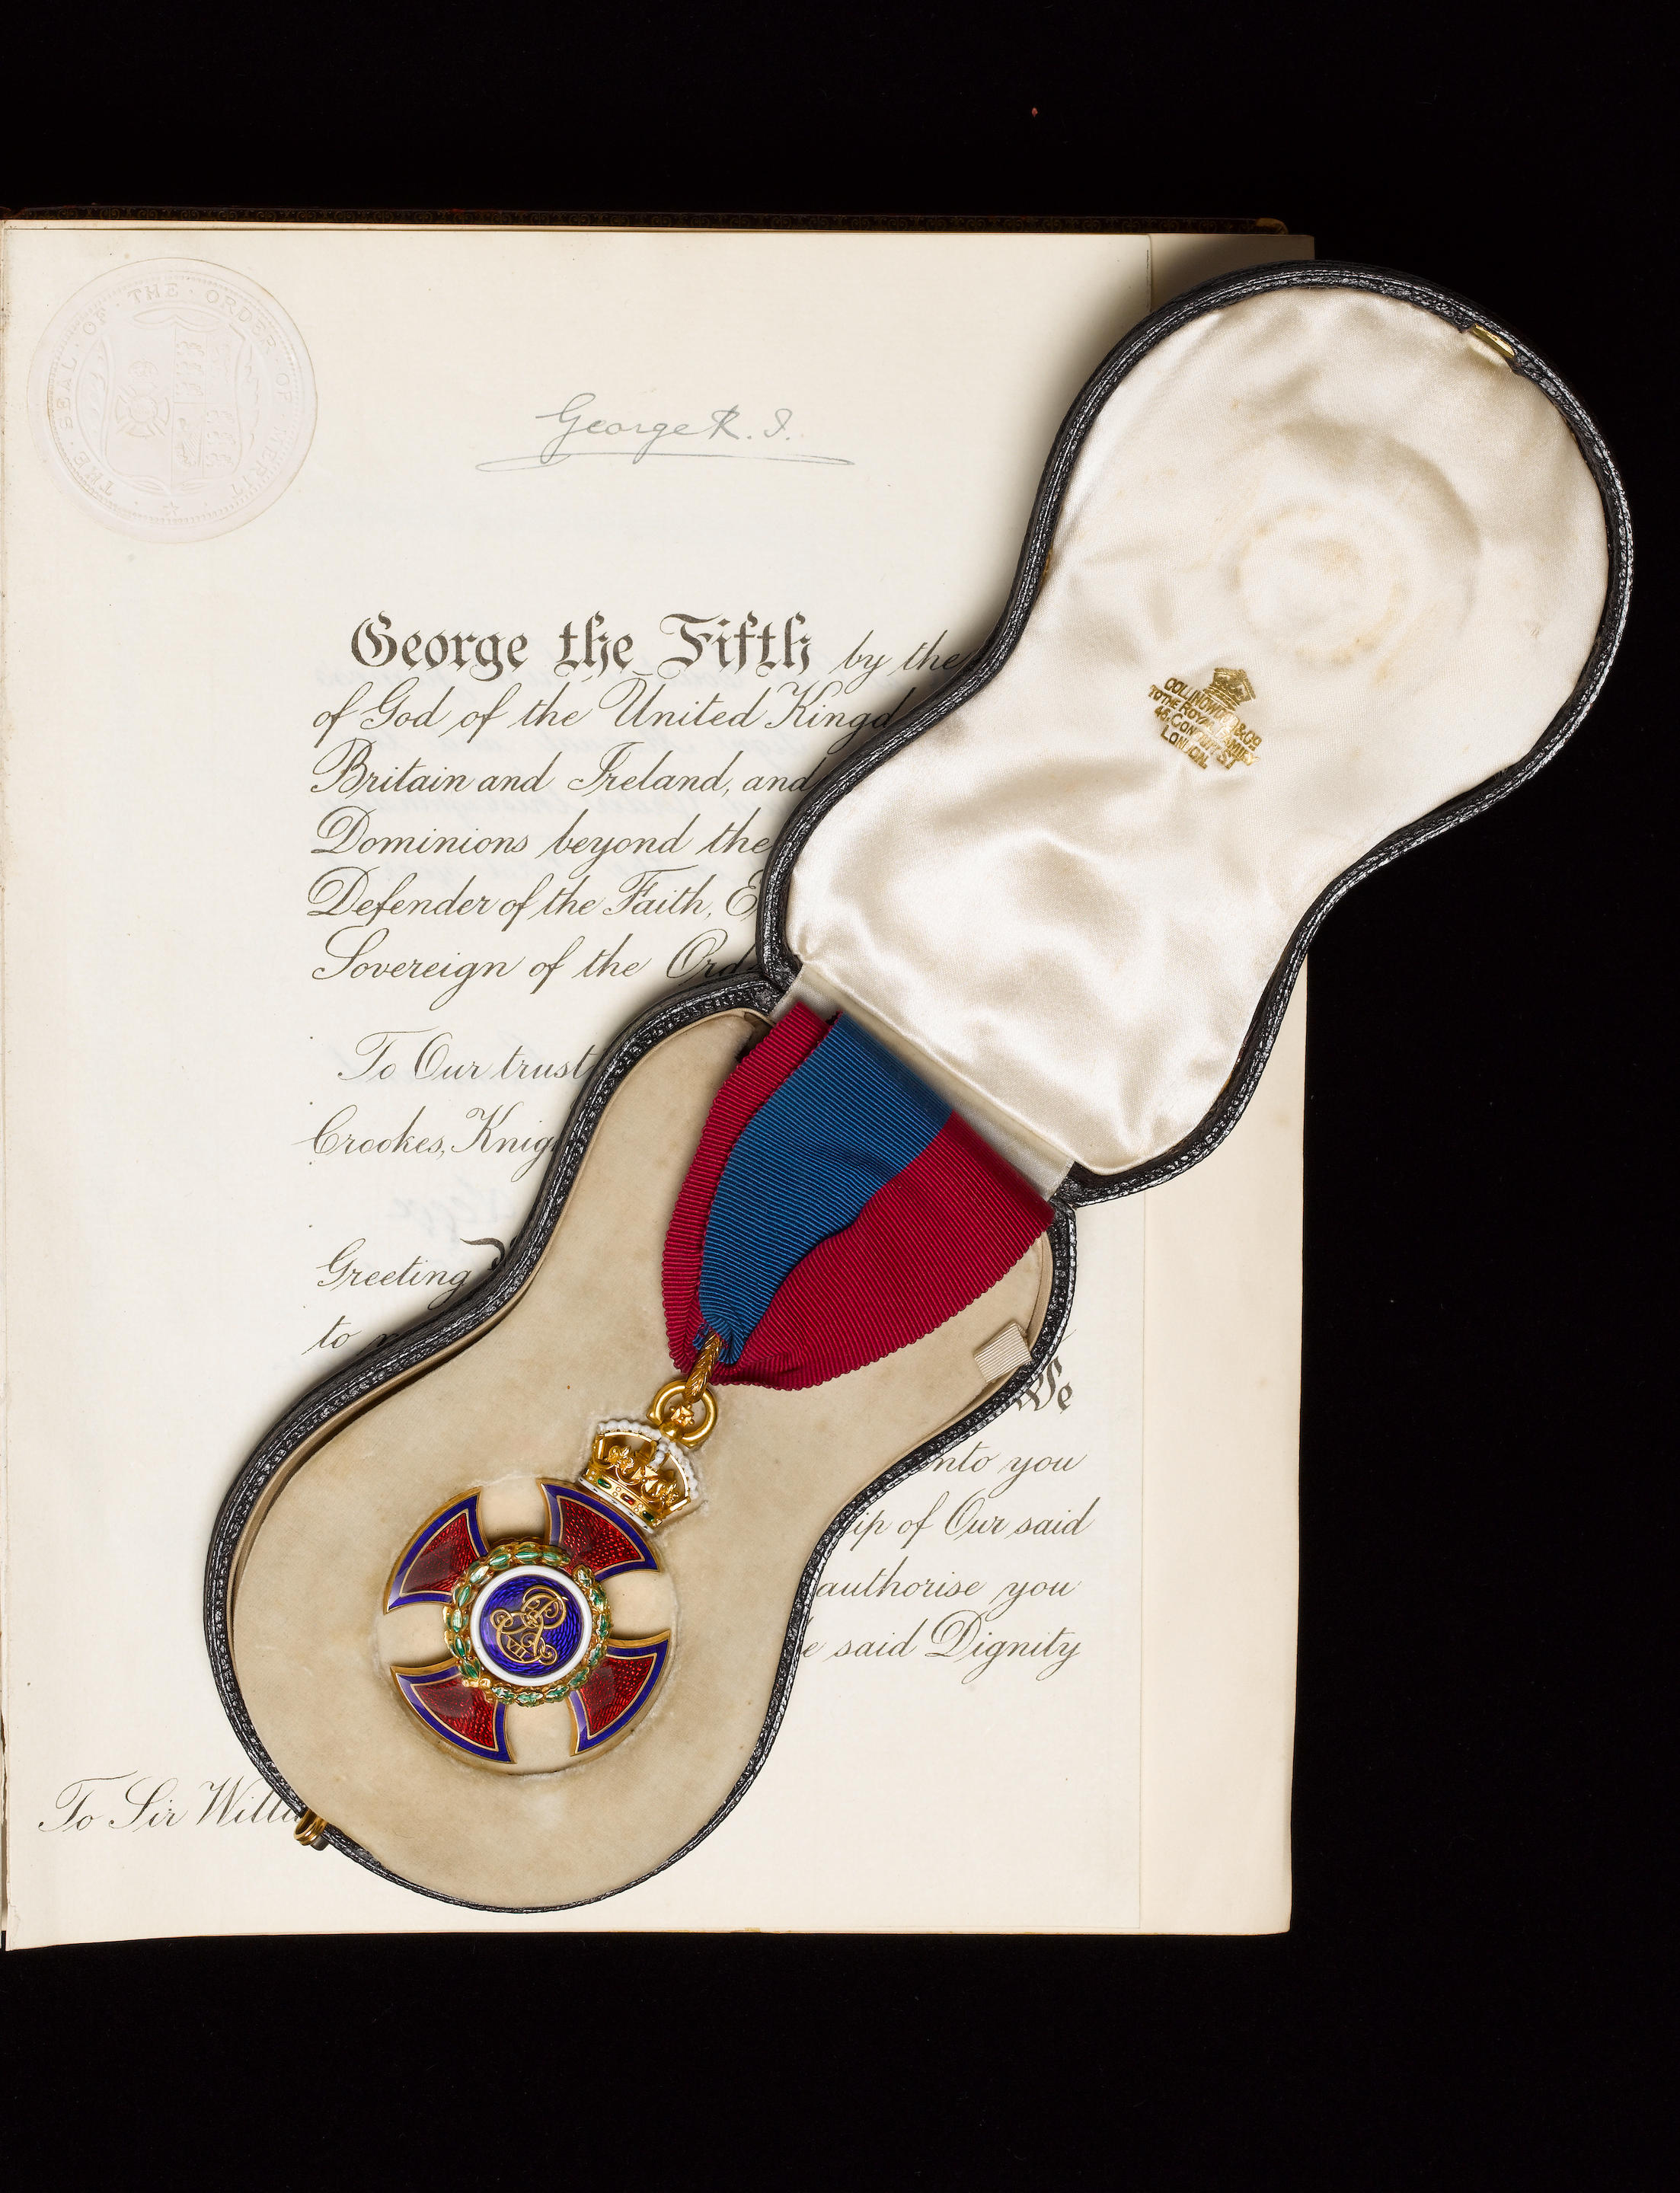 THE · SEAL · OF · THE · ORDER · OF · MERIT
George R. I.
George the Fifth by the
of God of the United Kingd
Britain and Ireland, and
Dominions beyond the
Defender of the Faith, E
Sovereign of the Ord
To Our trust
Crookes, Knig
Greeting
to
We
nto you
ip of Our said
authorise you
e said Dignity
To Sir Willia
COLLINGWOOD & CO
TO THE ROYAL FAMILY
46, CONDUIT ST
LONDON.
E R
VII